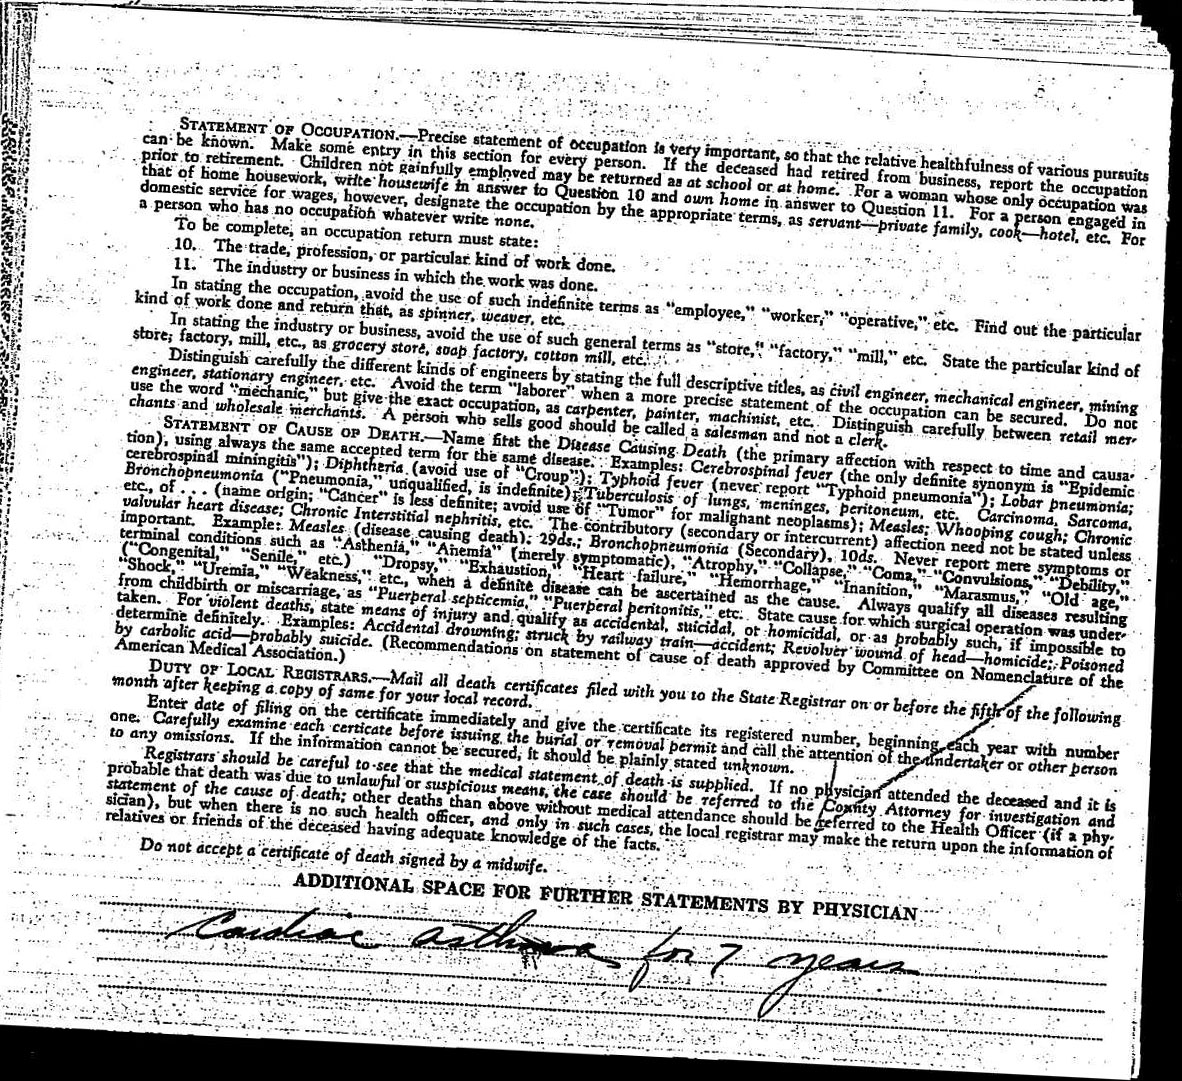 STATEMENT OF OCCUPATION.—Precise statement of occupation is very important, so that the relative healthfulness of various pursuits
can be known. Make some entry in this section for every person. If the deceased had retired from business, report the occupation
prior to retirement. Children not gainfully employed may be returned as at school or at home. For a woman whose only occupation was
that of home housework, write housewife in answer to Question 10 and own home in answer to Question 11. For a person engaged in
domestic service for wages, however, designate the occupation by the appropriate terms, as servant—private family, cook—hotel, etc. For
a person who has no occupation whatever write none.
To be complete, an occupation return must state:
10. The trade, profession, or particular kind of work done.
11. The industry or business in which the work was done.
In stating the occupation, avoid the use of such indefinite terms as "employee," "worker," "operative," etc. Find out the particular
kind of work done and return that, as spinner, weaver, etc.
In stating the industry or business, avoid the use of such general terms as "store," "factory," "mill," etc. State the particular kind of
store, factory, mill, etc., as grocery store, soap factory, cotton mill, etc.
Distinguish carefully the different kinds of engineers by stating the full descriptive titles, as civil engineer, mechanical engineer, mining
engineer, stationary engineer, etc. Avoid the term "laborer" when a more precise statement of the occupation can be secured. Do not
use the word "mechanic," but give the exact occupation, as carpenter, painter, machinist, etc. Distinguish carefully between retail mer-
chants and wholesale merchants. A person who sells good should be called a salesman and not a clerk.
STATEMENT OF CAUSE OF DEATH.—Name first the Disease Causing Death (the primary affection with respect to time and causa-
tion), using always the same accepted term for the same disease. Examples: Cerebrospinal fever (the only definite synonym is "Epidemic
cerebrospinal miningitis"); Diphtheria (avoid use of "Croup"); Typhoid fever (never report "Typhoid pneumonia"); Lobar pneumonia;
Bronchopneumonia ("Pneumonia," unqualified, is indefinite); Tuberculosis of lungs, meninges, peritoneum, etc. Carcinoma, Sarcoma,
etc., of . . . (name origin; "Cancer" is less definite; avoid use of "Tumor" for malignant neoplasms); Measles; Whooping cough; Chronic
valvular heart disease; Chronic Interstitial nephritis, etc. The contributory (secondary or intercurrent) affection need not be stated unless
important. Example: Measles (disease causing death); 29ds.; Bronchopneumonia (Secondary), 10ds. Never report mere symptoms or
terminal conditions such as "Asthenia," "Anemia" (merely symptomatic), "Atrophy," "Collapse," "Coma," "Convulsions," "Debility,"
("Congenital," "Senile," etc.) "Dropsy," "Exhaustion," "Heart failure," "Hemorrhage," "Inanition," "Marasmus," "Old age,"
"Shock," "Uremia," "Weakness," etc., when a definite disease can be ascertained as the cause. Always qualify all diseases resulting
from childbirth or miscarriage, as "Puerperal septicemia," "Puerperal peritonitis," etc. State cause for which surgical operation was under-
taken. For violent deaths, state means of injury and qualify as accidental, suicidal, or homicidal, or as probably such, if impossible to
determine definitely. Examples: Accidental drowning; struck by railway train—accident; Revolver wound of head—homicide; Poisoned
by carbolic acid—probably suicide. (Recommendations on statement of cause of death approved by Committee on Nomenclature of the
American Medical Association.)
DUTY OF LOCAL REGISTRARS.—Mail all death certificates filed with you to the State Registrar on or before the fifth of the following
month after keeping a copy of same for your local record.
Enter date of filing on the certificate immediately and give the certificate its registered number, beginning each year with number
one. Carefully examine each certicate before issuing the burial or removal permit and call the attention of the undertaker or other person
to any omissions. If the information cannot be secured, it should be plainly stated unknown.
Registrars should be careful to see that the medical statement of death is supplied. If no physician attended the deceased and it is
probable that death was due to unlawful or suspicious means, the case should be referred to the County Attorney for investigation and
statement of the cause of death; other deaths than above without medical attendance should be referred to the Health Officer (if a phy-
sician), but when there is no such health officer, and only in such cases, the local registrar may make the return upon the information of
relatives or friends of the deceased having adequate knowledge of the facts.
Do not accept a certificate of death signed by a midwife.
ADDITIONAL SPACE FOR FURTHER STATEMENTS BY PHYSICIAN
Cardiac asthma for 7 years